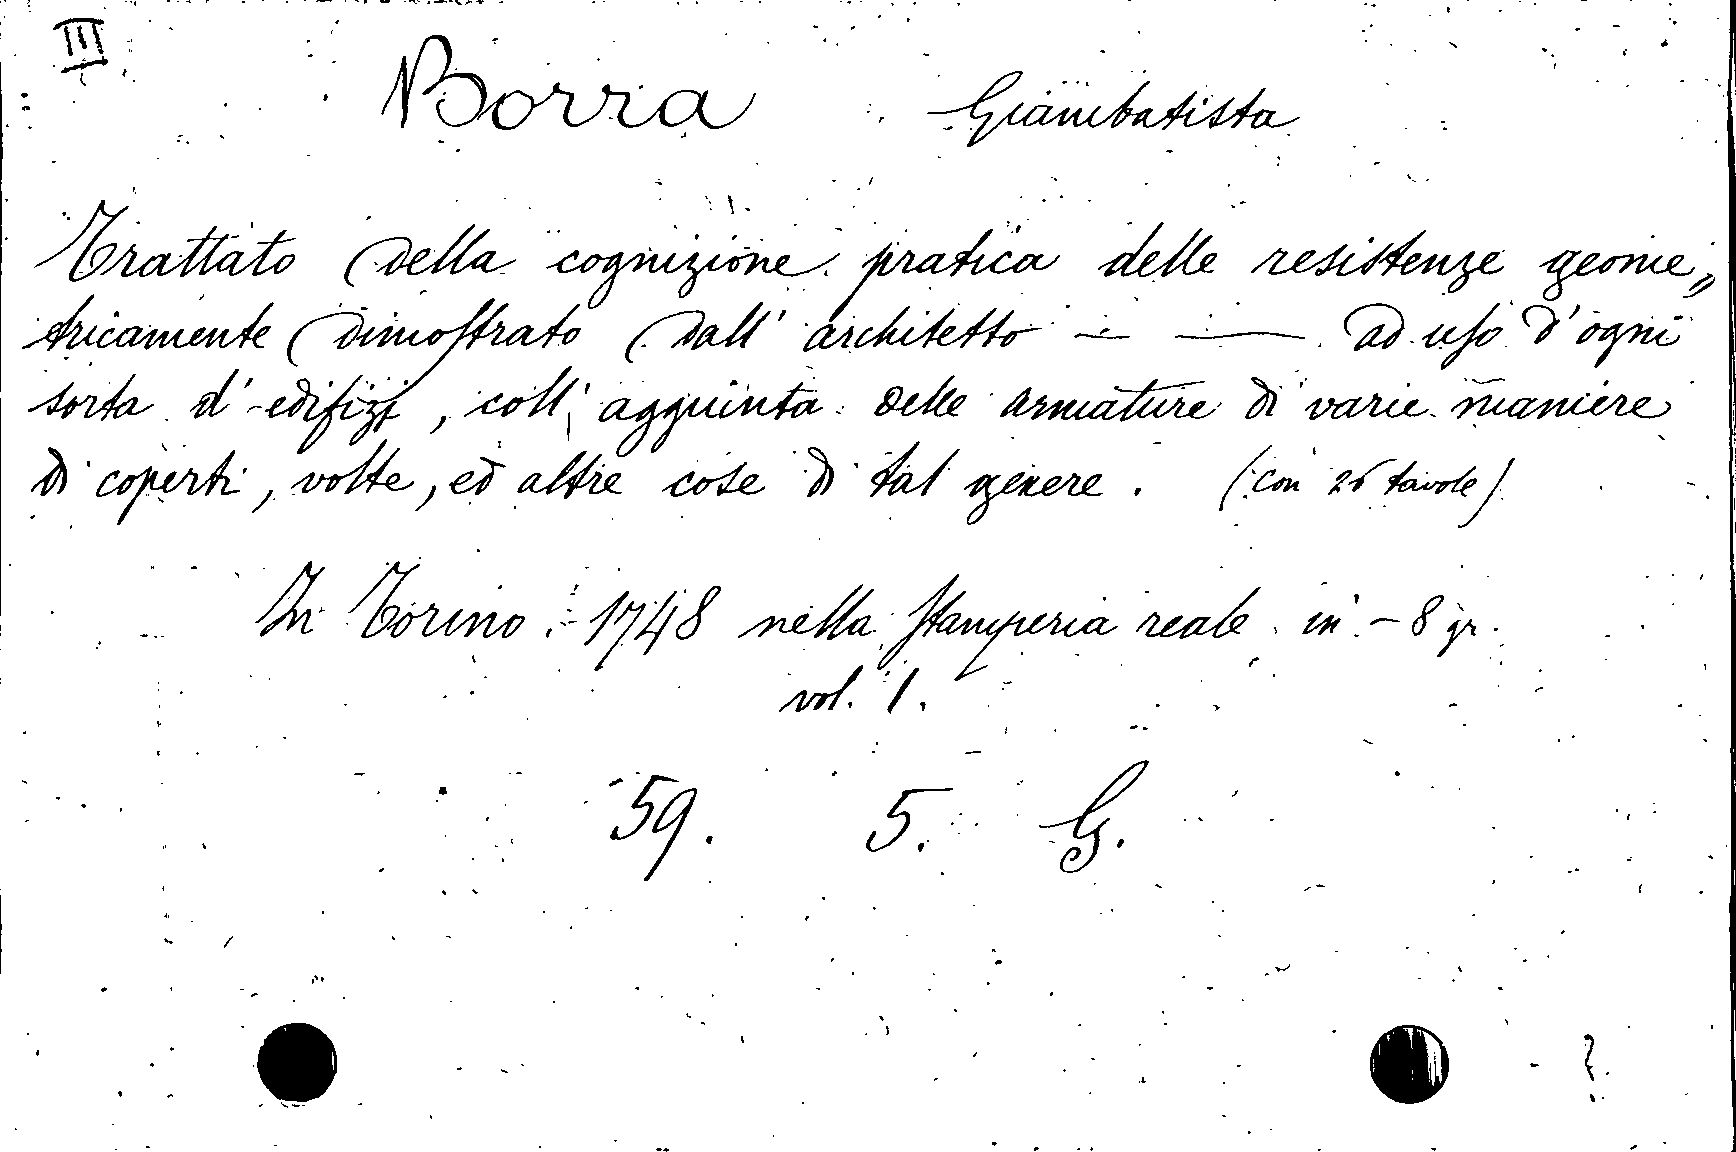 III
Borra Giambatista
Trattato della cognizione pratica delle resistenze geome„
tricamente dimostrato dall' architetto — — ad uso d'ogni
sorta d'edifizj, coll' aggiunta delle armature di varie maniere
di coperti, volte, ed altre cose di tal genere. (con 26 tavole)
In Torino. - 1748 nella Stamperia reale in - 8 gr.
vol. 1.
59. 5. G.